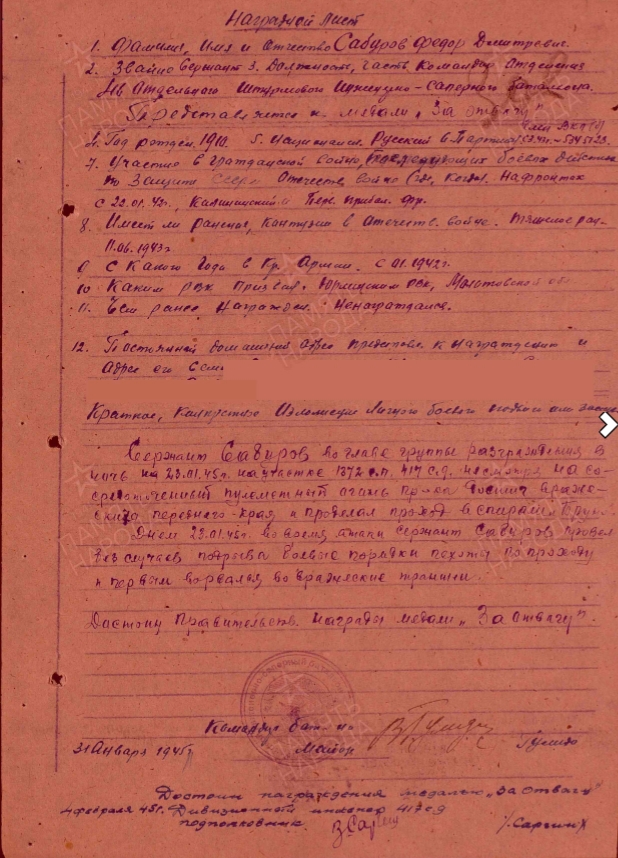 Наградной Лист
1. Фамилия, Имя и отчество Сабуров Федор Дмитревич.
2. Звание Сержант 3. Должность, часть Командир Отделения
Отдельного Штурмового Инженерно-Саперного баталиона.
Представляется к медали „За отвагу"
4. Год рожден. 1910. 5. Национальн. Русский 6. Партийн.
7. Участие в гражданской войне, боевых действиях
по Защите СССР Отечеств. войне (где, когда). На фронтах
с 22.01.42г., Калининский и Приб. фр.
8. Имеет ли ранения, контузии в отечеств. войне. Тяжелое ран.
11.06.1943г.
9. с какого года в Кр. Армии. с 01.1942г.
10. Каким рвк призван. Юрлинским РВК, Молотовской об
11. Чем ранее награжден. Ненаграждался.
12. Постоянной домашний адрес представл. к награждению и
адрес его семьи
Краткое, конкретное изложение личного боевого подвига или заслуг
Сержант Сабуров во главе группы разграждения в
ночь на 23.01.45г. на участке 1372 с.п. 417 с.д. несмотря на со-
средоточенный пулеметный огонь пр-ка достиг враже-
ского переднего края и проделал проход в спирали
Днем 23.01.45г. во время атаки сержант Сабуров провел
без случаев подрыва боевые порядки пехоты по проходу
и первым ворвался во вражеские траншеи.
Достоин Правительств. награды медали „За Отвагу".
Командир бат-на
31 Января 1945г. Майор
Достоин награждения медалью „За Отвагу"
4 февраля 45г. Дивизионный инженер 417 сд
подполковник